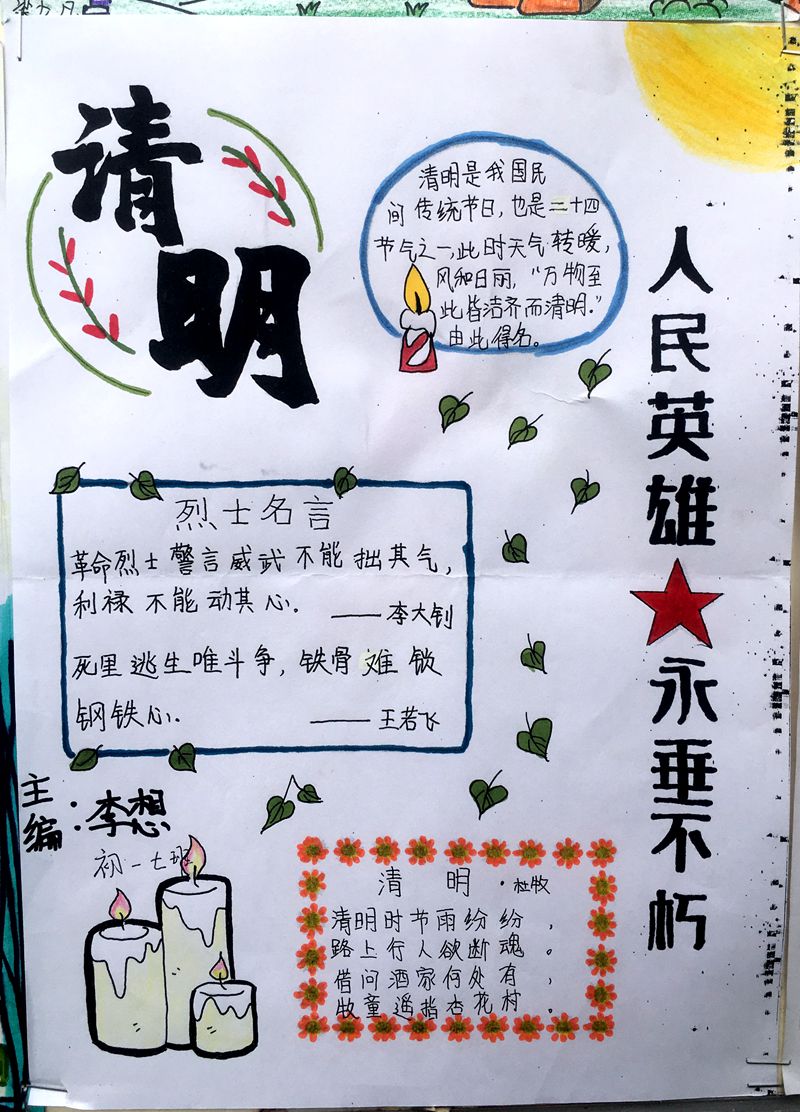 清
明
清明是我国民
间传统节日,也是二十四
节气之一,此时天气转暖,
风和日丽,“万物至
此皆洁齐而清明.”
由此得名。
人民英雄★永垂不朽
烈士名言
革命烈士警言威武不能拙其气,
利禄不能动其心.
——李大钊
死里逃生唯斗争,铁骨难锁
钢铁心.
——王若飞
主编:李想
初一七班
清 明 · 杜牧
清明时节雨纷纷,
路上行人欲断魂。
借问酒家何处有,
牧童遥指杏花村。